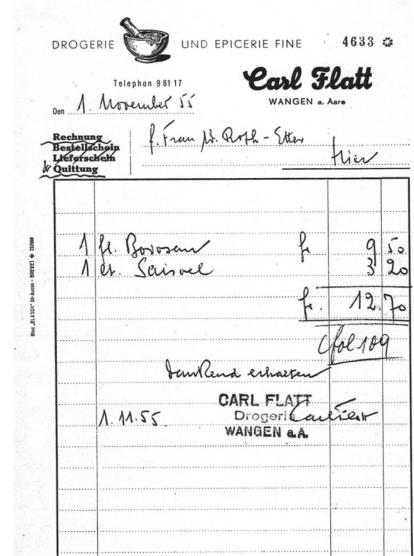 DROGERIE UND EPICERIE FINE 4633
Telephon 9 61 17
Carl Flatt
WANGEN a. Aare
Den 1. November 55
Rechnung
Bestellschein
Lieferschein
Quittung
f. Frau W. Roth-Etter
Hier
1 fl. Borosan fr 9 50
1 Saisvel 3 20
fr. 12.70
fol 109
dankend erhalten
CARL FLATT
1.11.55. Drogerie Carl Flatt
WANGEN a.A.